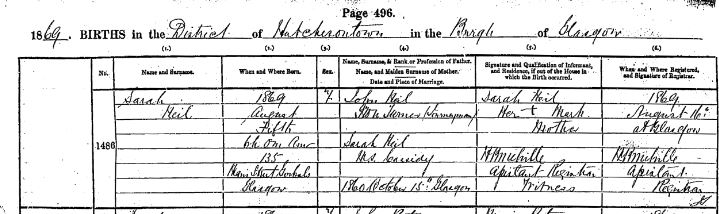 Page 496.
1869. BIRTHS in the District of Hutchesontown in the Burgh of Glasgow
(1.) (2.) (3.) (4.) (5.) (6.)
No. Name and Surname. When and Where Born. Sex. Name, Surname, & Rank or Profession of Father. Name, and Maiden Surname of Mother. Date and Place of Marriage. Signature and Qualification of Informant, and Residence, if out of the House in which the Birth occurred. When and Where Registered, and Signature of Registrar.
1486
Sarah
Neil
1869
August
Fifth
135
Main Street Gorbals
Glasgow
F
John Neil
Sarah Neil
M.S. Cassidy
1860 October 15th Glasgow
Sarah Neil
Her + Mark
Mother
Assistant Registrar
Witness
1869
August 16th
at Glasgow
Assistant
Registrar